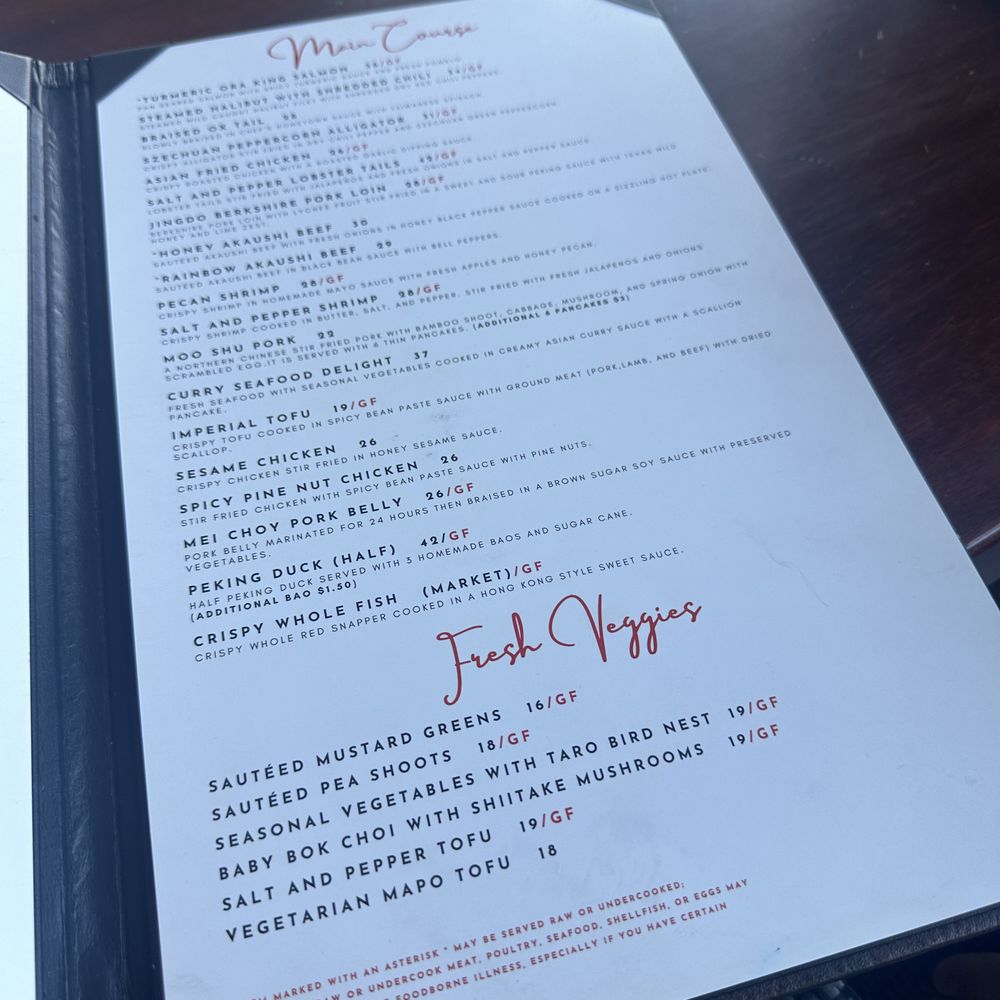 Main Course
*TURMERIC ORA KING SALMON 38/GF
PAN SEARED SALMON WITH SPICY TURMERIC SAUCE AND FRESH
STEAMED HALIBUT WITH SHREDDED CHILI
STEAMED WILD CAUGHT HALIBUT FILET WITH SHREDDED DRY RED CHILI PEPPERS.
BRAISED OX TAIL
SLOWLY BRAISED IN CHEF'S HOMETOWN SAUCE WITH TAIWANESE SPINACH.
SZECHUAN PEPPERCORN ALLIGATOR 31/GF
CRISPY ALLIGATOR STIR FRIED IN RED CHILI PEPPER AND SZECHUAN GREEN PEPPERCORN.
ASIAN FRIED CHICKEN 26/GF
CRISPY ROASTED CHICKEN WITH ROASTED GARLIC DIPPING SAUCE.
SALT AND PEPPER LOBSTER TAILS 42/GF
LOBSTER TAILS STIR FRIED WITH JALAPENOS AND FRESH ONIONS IN SALT AND PEPPER SAUCE.
JINGDO BERKSHIRE PORK LOIN 28/GF
BERKSHIRE PORK LOIN WITH LYCHEE FRUIT STIR FRIED IN A SWEET AND SOUR PEKING SAUCE WITH TEXAS WILD
HONEY AND LIME ZEST.
*HONEY AKAUSHI BEEF 30
SAUTÉED AKAUSHI BEEF WITH FRESH ONIONS IN HONEY BLACK PEPPER SAUCE COOKED ON A SIZZLING HOT PLATE.
*RAINBOW AKAUSHI BEEF 29
SAUTÉED AKAUSHI BEEF IN BLACK BEAN SAUCE WITH BELL PEPPERS.
PECAN SHRIMP 28/GF
CRISPY SHRIMP IN HOMEMADE MAYO SAUCE WITH FRESH APPLES AND HONEY PECAN.
SALT AND PEPPER SHRIMP 28/GF
CRISPY SHRIMP COOKED IN BUTTER, SALT, AND PEPPER, STIR FRIED WITH FRESH JALAPENOS AND ONIONS
MOO SHU PORK 22
A NORTHERN CHINESE STIR FRIED PORK WITH BAMBOO SHOOT, CABBAGE, MUSHROOM, AND SPRING ONION WITH
SCRAMBLED EGG.IT IS SERVED WITH 6 THIN PANCAKES. (ADDITIONAL 6 PANCAKES $3)
CURRY SEAFOOD DELIGHT 37
FRESH SEAFOOD WITH SEASONAL VEGETABLES COOKED IN CREAMY ASIAN CURRY SAUCE WITH A SCALLION
PANCAKE.
IMPERIAL TOFU 19/GF
CRISPY TOFU COOKED IN SPICY BEAN PASTE SAUCE WITH GROUND MEAT (PORK,LAMB, AND BEEF) WITH DRIED
SCALLOP.
SESAME CHICKEN 26
CRISPY CHICKEN STIR FRIED IN HONEY SESAME SAUCE.
SPICY PINE NUT CHICKEN 26
STIR FRIED CHICKEN WITH SPICY BEAN PASTE SAUCE WITH PINE NUTS.
MEI CHOY PORK BELLY 26/GF
PORK BELLY MARINATED FOR 24 HOURS THEN BRAISED IN A BROWN SUGAR SOY SAUCE WITH PRESERVED
VEGETABLES.
PEKING DUCK (HALF) 42/GF
HALF PEKING DUCK SERVED WITH 3 HOMEMADE BAOS AND SUGAR CANE.
(ADDITIONAL BAO $1.50)
CRISPY WHOLE FISH (MARKET)/GF
CRISPY WHOLE RED SNAPPER COOKED IN A HONG KONG STYLE SWEET SAUCE.
Fresh Veggies
SAUTÉED MUSTARD GREENS 16/GF
SAUTÉED PEA SHOOTS 18/GF
SEASONAL VEGETABLES WITH TARO BIRD NEST 19/GF
BABY BOK CHOI WITH SHIITAKE MUSHROOMS 19/GF
SALT AND PEPPER TOFU 19/GF
VEGETARIAN MAPO TOFU 18
MARKED WITH AN ASTERISK * MAY BE SERVED RAW OR UNDERCOOKED;
RAW OR UNDERCOOK MEAT, POULTRY, SEAFOOD, SHELLFISH, OR EGGS MAY
FOODBORNE ILLNESS, ESPECIALLY IF YOU HAVE CERTAIN